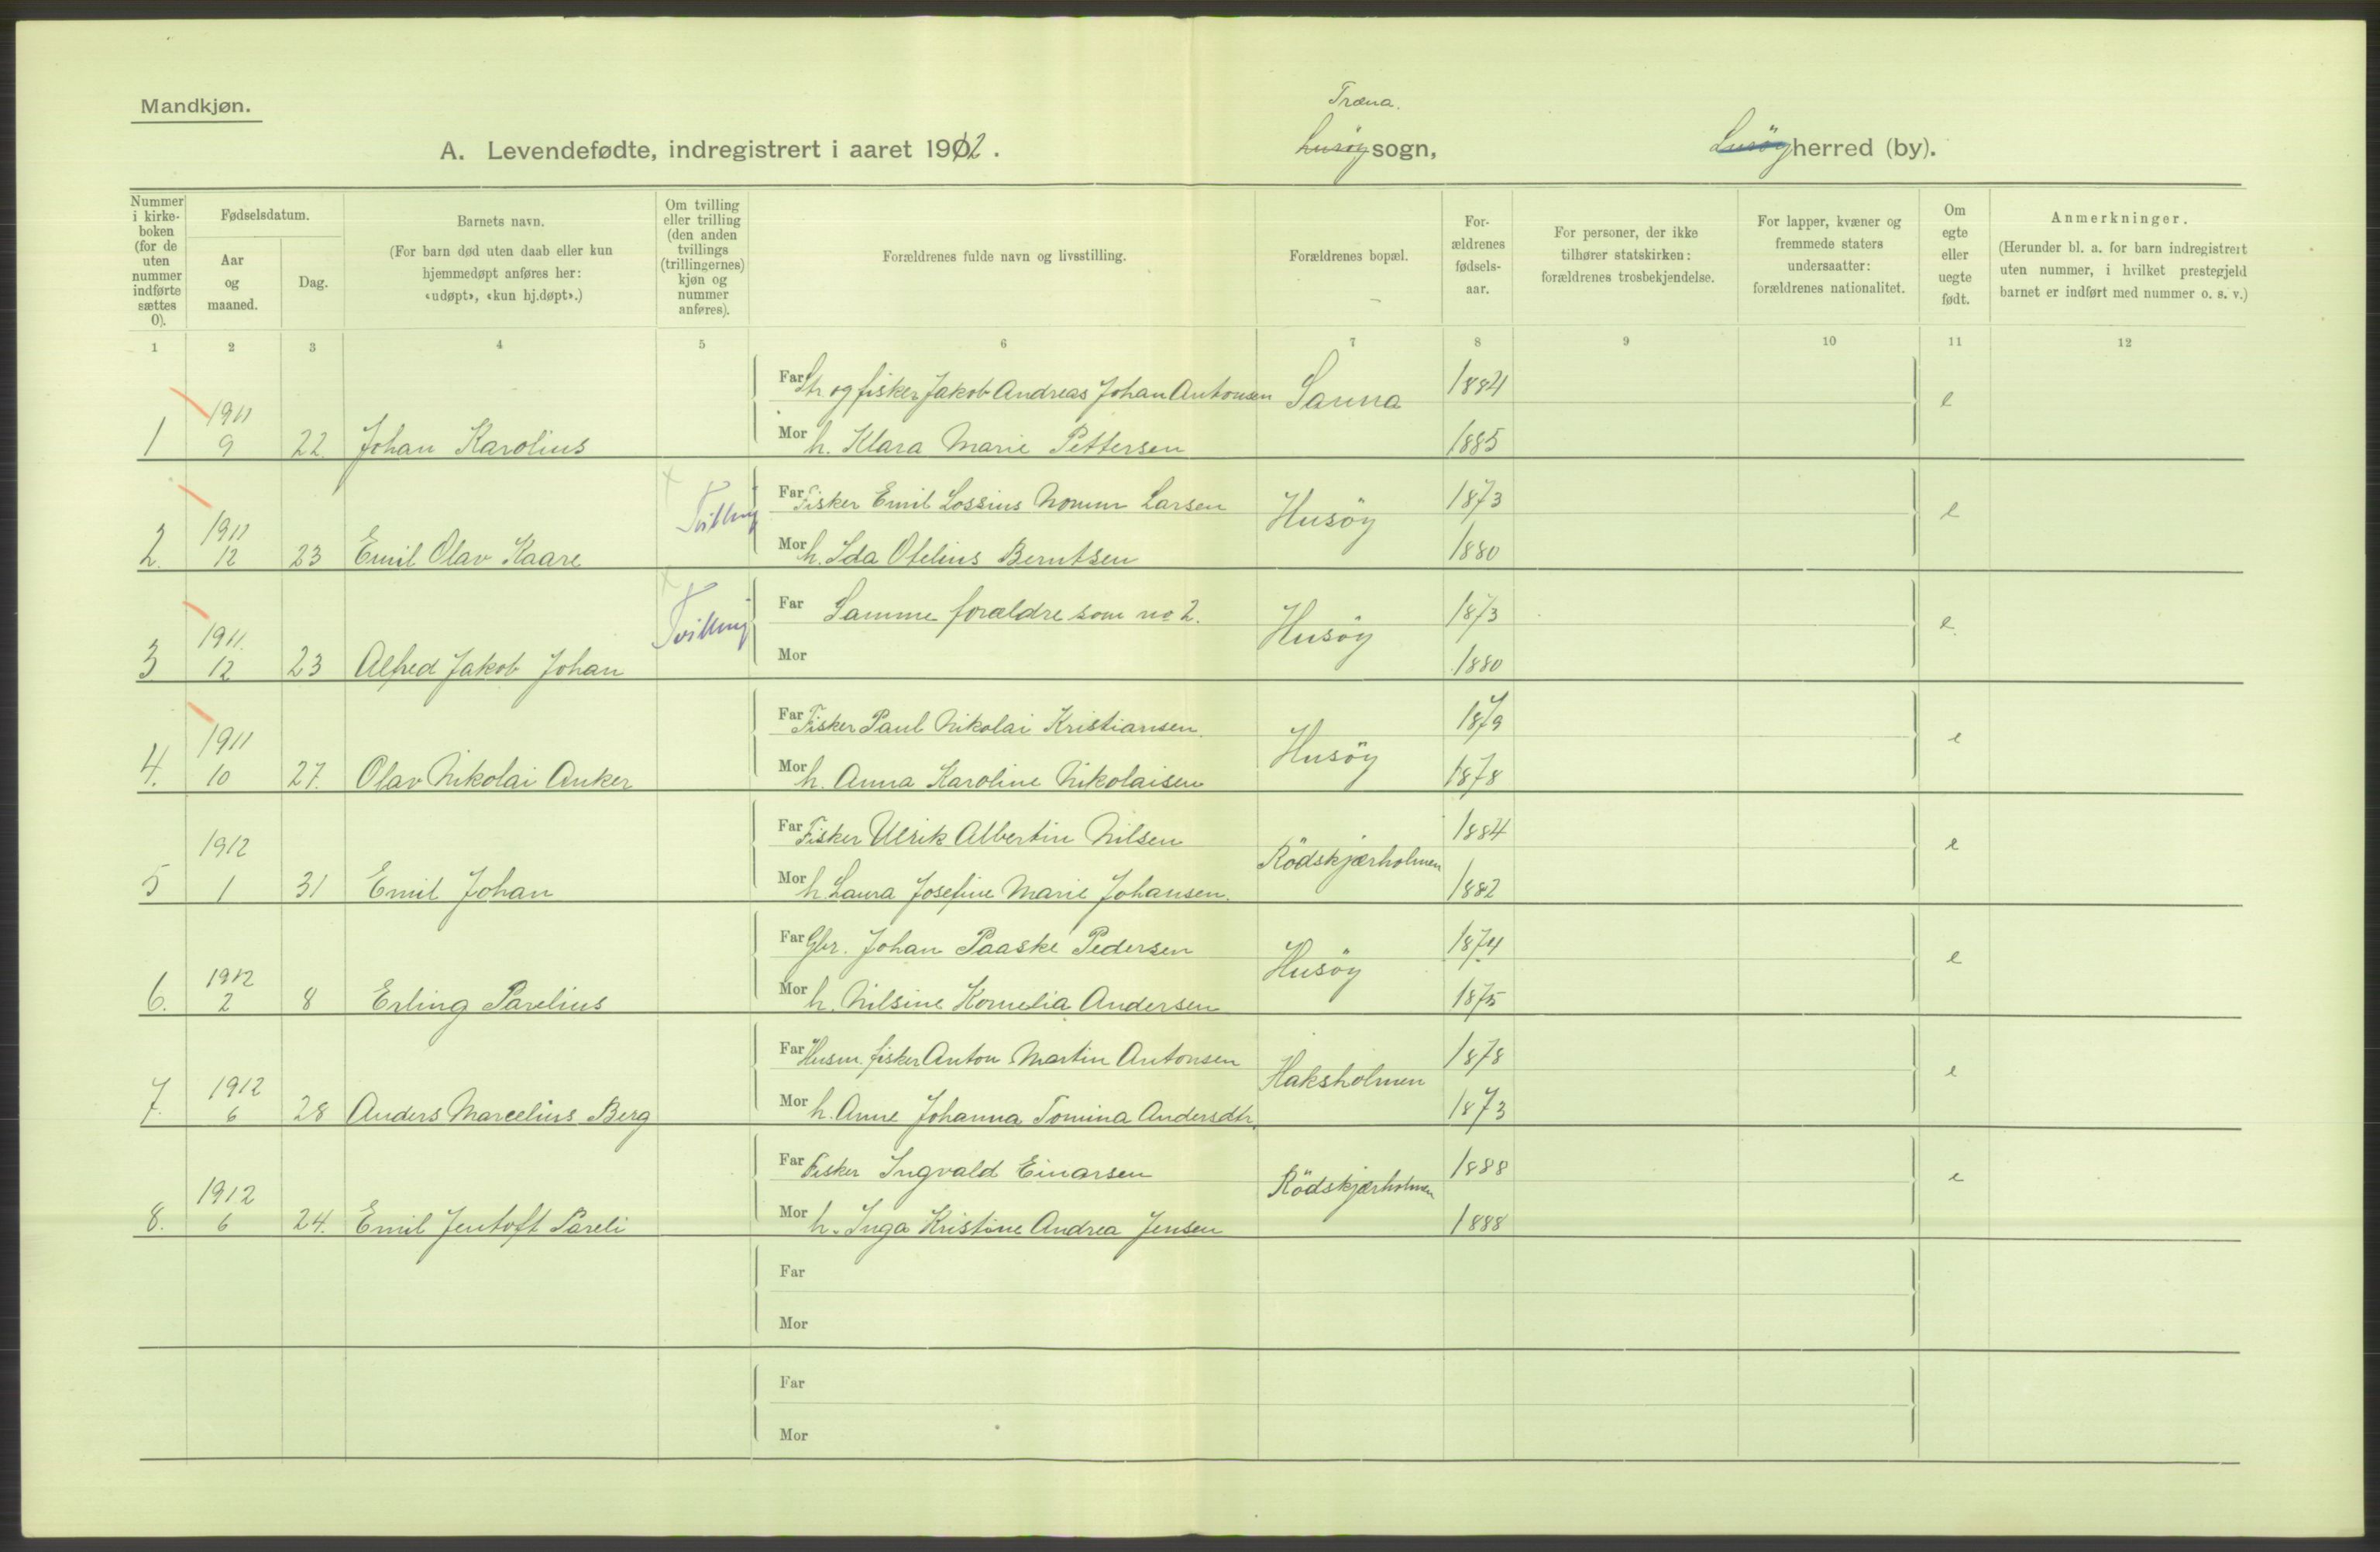 Mandkjøn.
Træna.
A. Levendefødte, indregistrert i aaret 1912. Lurøy sogn, Lurøy herred (by).
Nummer i kirkeboken (for de uten nummer indførte sættes 0).
Fødselsdatum.
Aar og maaned.
Dag.
Barnets navn.
(For barn død uten daab eller kun hjemmedøpt anføres her: «udøpt», «kun hj.døpt».)
Om tvilling eller trilling (den anden tvillings (trillingernes) kjøn og nummer anføres).
Forældrenes fulde navn og livsstilling.
Forældrenes bopæl.
Forældrenes fødselsaar.
For personer, der ikke tilhører statskirken: forældrenes trosbekjendelse.
For lapper, kvæner og fremmede staters undersaatter: forældrenes nationalitet.
Om egte eller uegte født.
Anmerkninger.
(Herunder bl. a. for barn indregistrert uten nummer, i hvilket prestegjeld barnet er indført med nummer o. s. v.)
1 2 3 4 5 6 7 8 9 10 11 12
Far Str og fisker Jakob Andreas Johan Antonsen Sanna 1884 e
1 1911 9 22. Johan Karolius Mor h. Klara Marie Pettersen 1885
Tvilling Far Fisker Emil Lossius Larsen Husöy 1873 e
2. 1911 12 23 Emil Olav Kaare Mor h. Ida Otelius Berntsen 1880
Tvilling Far Samme forældre som no 2. Husöy 1873 e.
3 1911. 12 23 Alfred Jakob Johan Mor 1880
Far Fisker Paul Nikolai Kristiansen. Husöy 1879 e
4. 1911 10 27. Olav Nikolai Anker Mor h. Anna Karoline Nikolaisen 1878
Far Fisker Ulrik Albertin Nilsen Rödskjærholmen 1884 e
5 1912 1 31 Emil Johan Mor h. Laura Josefine Marie Johansen. 1882
Far Gbr. Johan Paaske Pedersen Husöy 1874 e
6. 1912 2 8 Erling Parelius Mor h. Nilsine Kornelia Andersen 1875
Far Husm. fisker Anton Martin Antonsen Haksholmen 1878 e
7. 1912 6 28 Anders Marcelius Berg Mor h. Anne Johanna Tomina Andersdtr. 1873
Far Fisker Ingvald Einarsen Rödskjærholmen 1888 e
8. 1912 6 24. Emil Jentoft Pareli Mor h. Inga Kristine Andrea Jensen 1888
Far
Mor
Far
Mor